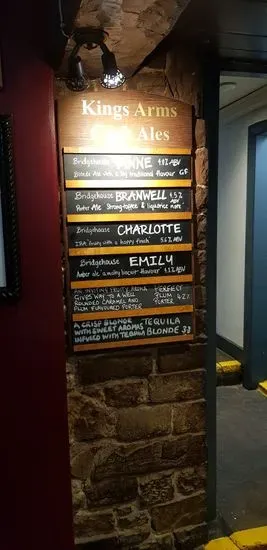 Kings Arms
Ales
Bridgehouse ANNE 4% ABV
traditional flavour GF
Bridgehouse BRANWELL 4.5% ABV
Porter Ale Strong toffee & liquorice notes
Bridgehouse CHARLOTTE
IPA fruity with a hoppy finish 5.6% ABV
Bridgehouse EMILY
Amber ale 'a malty biscuit flavour' ABV
AN INVITING FRUITY AROMA PERFECT
GIVES WAY TO A WELL PLUM 4.2%
ROUNDED CARAMEL AND PORTER
PLUM FLAVOURED PORTER
A CRISP BLONDE
WITH SWEET AROMAS TEQUILA
INFUSED WITH TEQUILA BLONDE